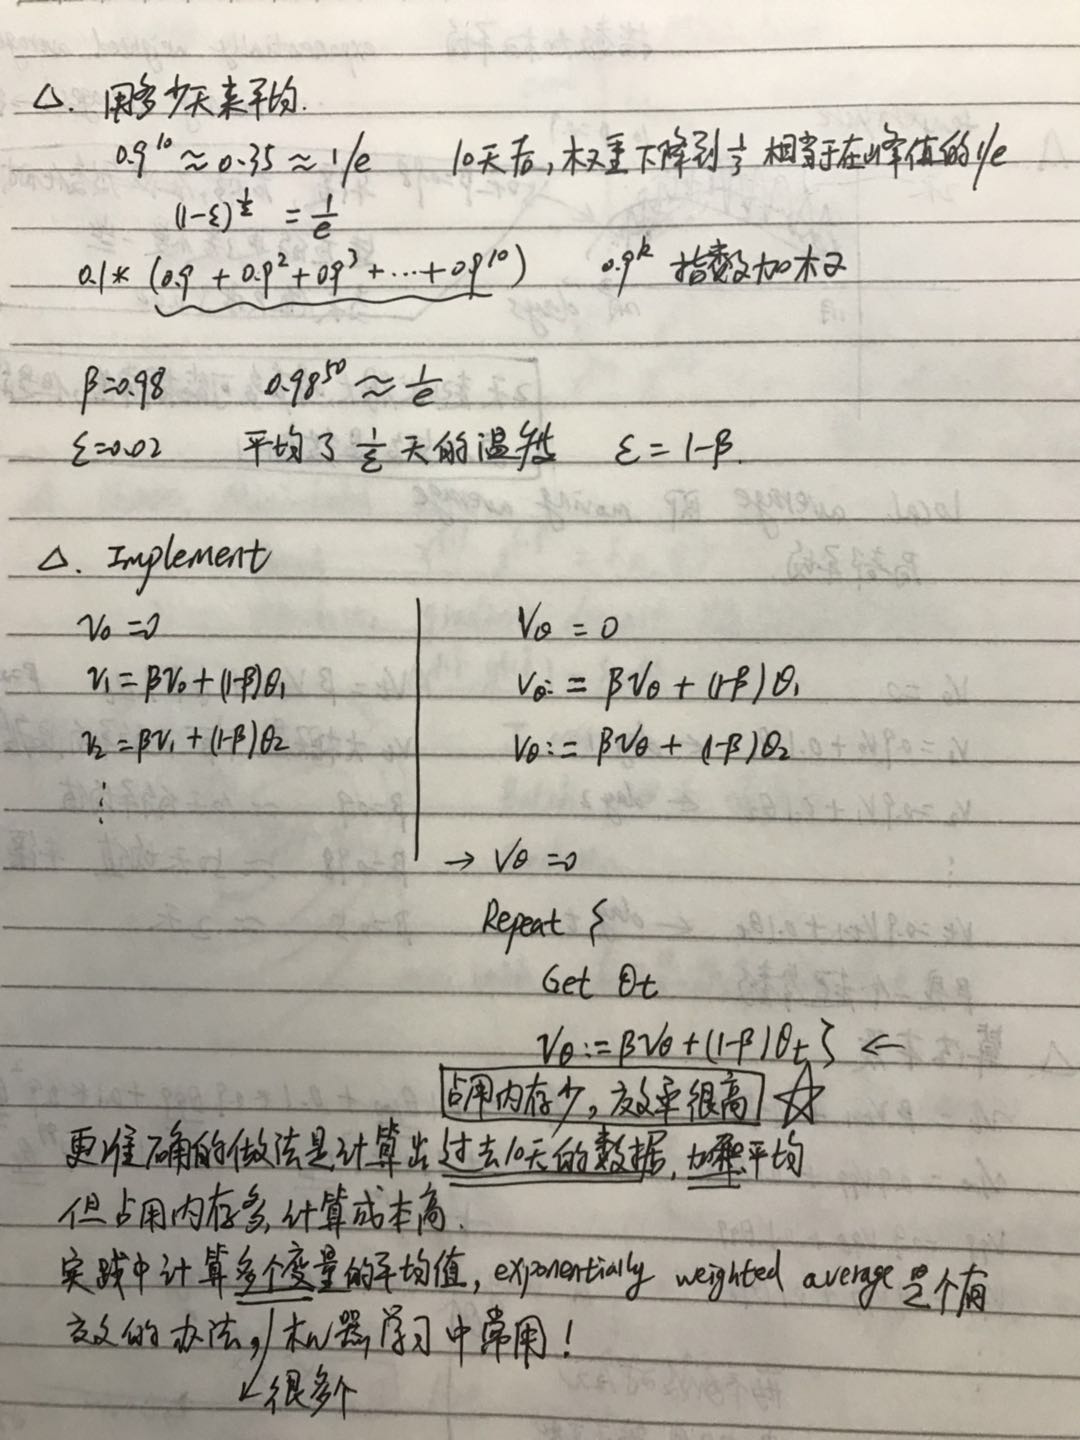 △. 用多少天来平均.
0.9^10 ≈ 0.35 ≈ 1/e 10天后,权重下降到 1/3 相当于在峰值的1/e
(1-ε)^{1/ε} = 1/e
0.1* (0.9 + 0.9^2 + 0.9^3 + ... + 0.9^10) 0.9^k 指数加权
β=0.98 0.98^50 ≈ 1/e
ε=0.02 平均了 1/ε 天的温度 ε = 1-β.
△. Implement
V0 =0
V1 = βV0 + (1-β)θ1
V2 = βV1 + (1-β)θ2
⋮
Vθ = 0
Vθ := βVθ + (1-β)θ1
Vθ := βVθ + (1-β)θ2
→ Vθ =0
Repeat {
Get θt
Vθ := βVθ + (1-β)θt } ←
占用内存少,效率很高 ☆
更准确的做法是计算出过去10天的数据,加和平均
但占用内存多,计算成本高.
实践中计算多个变量的平均值, exponentially weighted average 是个有
效的办法,机器学习中常用!
↙很多个